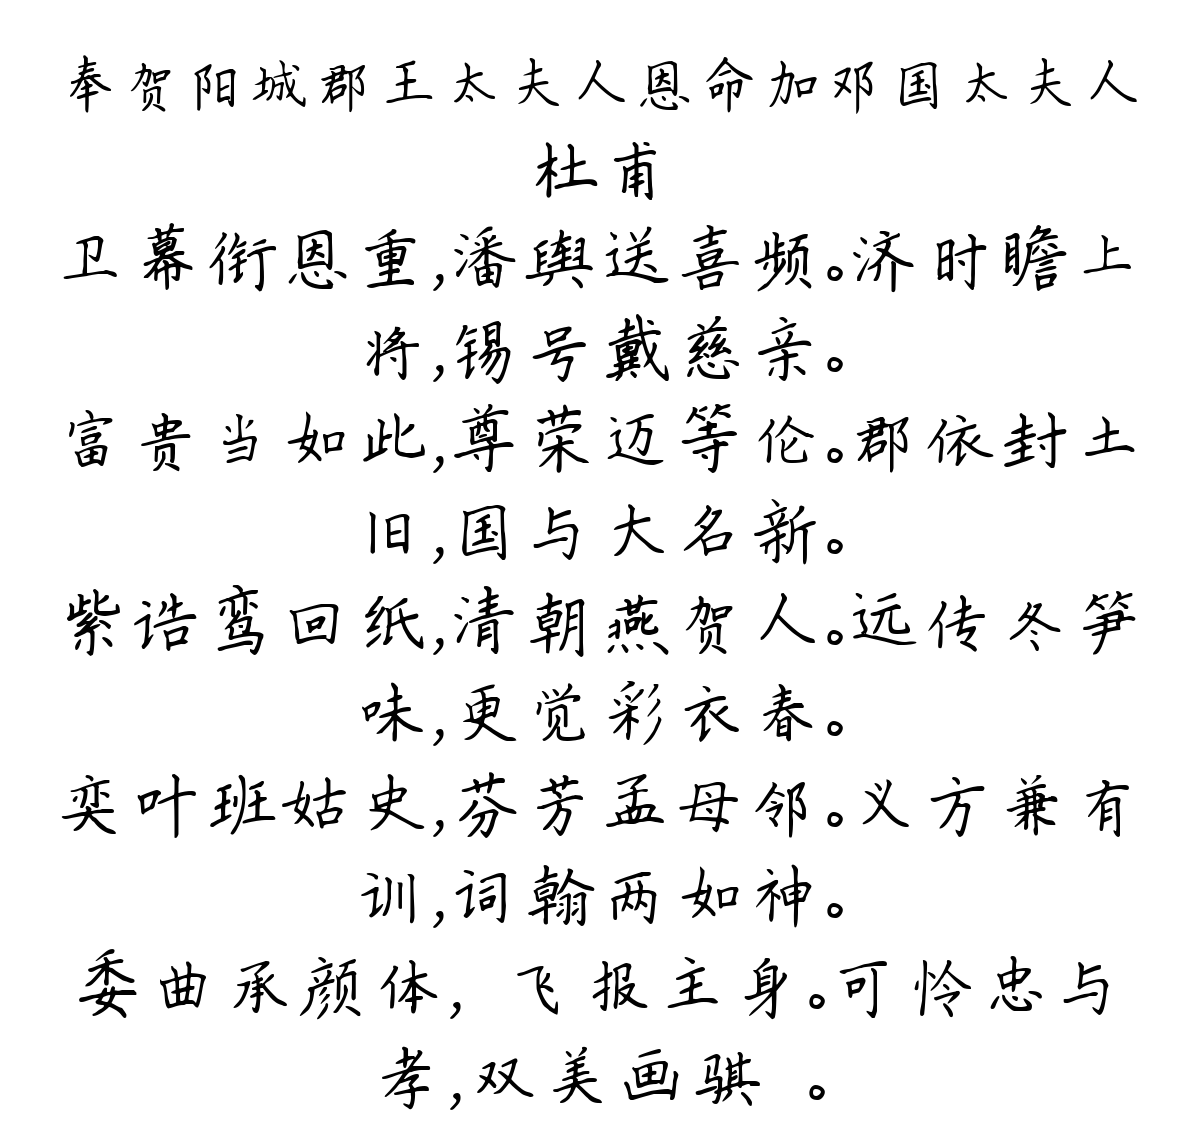 奉贺阳城郡王太夫人恩命加邓国太夫人
杜甫
卫幕衔恩重,潘舆送喜频。济时瞻上
将,锡号戴慈亲。
富贵当如此,尊荣迈等伦。郡依封土
旧,国与大名新。
紫诰鸾回纸,清朝燕贺人。远传冬笋
味,更觉彩衣春。
奕叶班姑史,芬芳孟母邻。义方兼有
训,词翰两如神。
委曲承颜体, 飞报主身。可怜忠与
孝,双美画骐 。